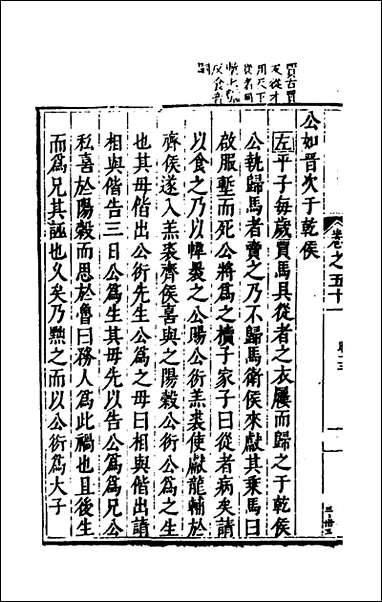 卷之五十一
公如晉次于乾侯
左平子每歲買馬具從者之衣屨而歸之于乾侯
公執歸馬者賣之乃不歸馬衛侯來獻其乘馬曰
啟服塹而死公將爲之櫝子家子曰從者病矣請
以食之乃以幃裹之公賜公衍羔裘使獻龍輔於
齊侯遂入羔裘齊侯喜與之陽榖公衍公爲之生
也其母偕出公衍先生公爲之母曰相與偕出請
相與偕告三日公爲生其母先以告公爲爲兄公
私喜於陽榖而思於魯曰務人爲此禍也且後生
而爲兄其誣也久矣乃黜之而以公衍爲大子
反從才
用天下
從者同
反食音
嗣